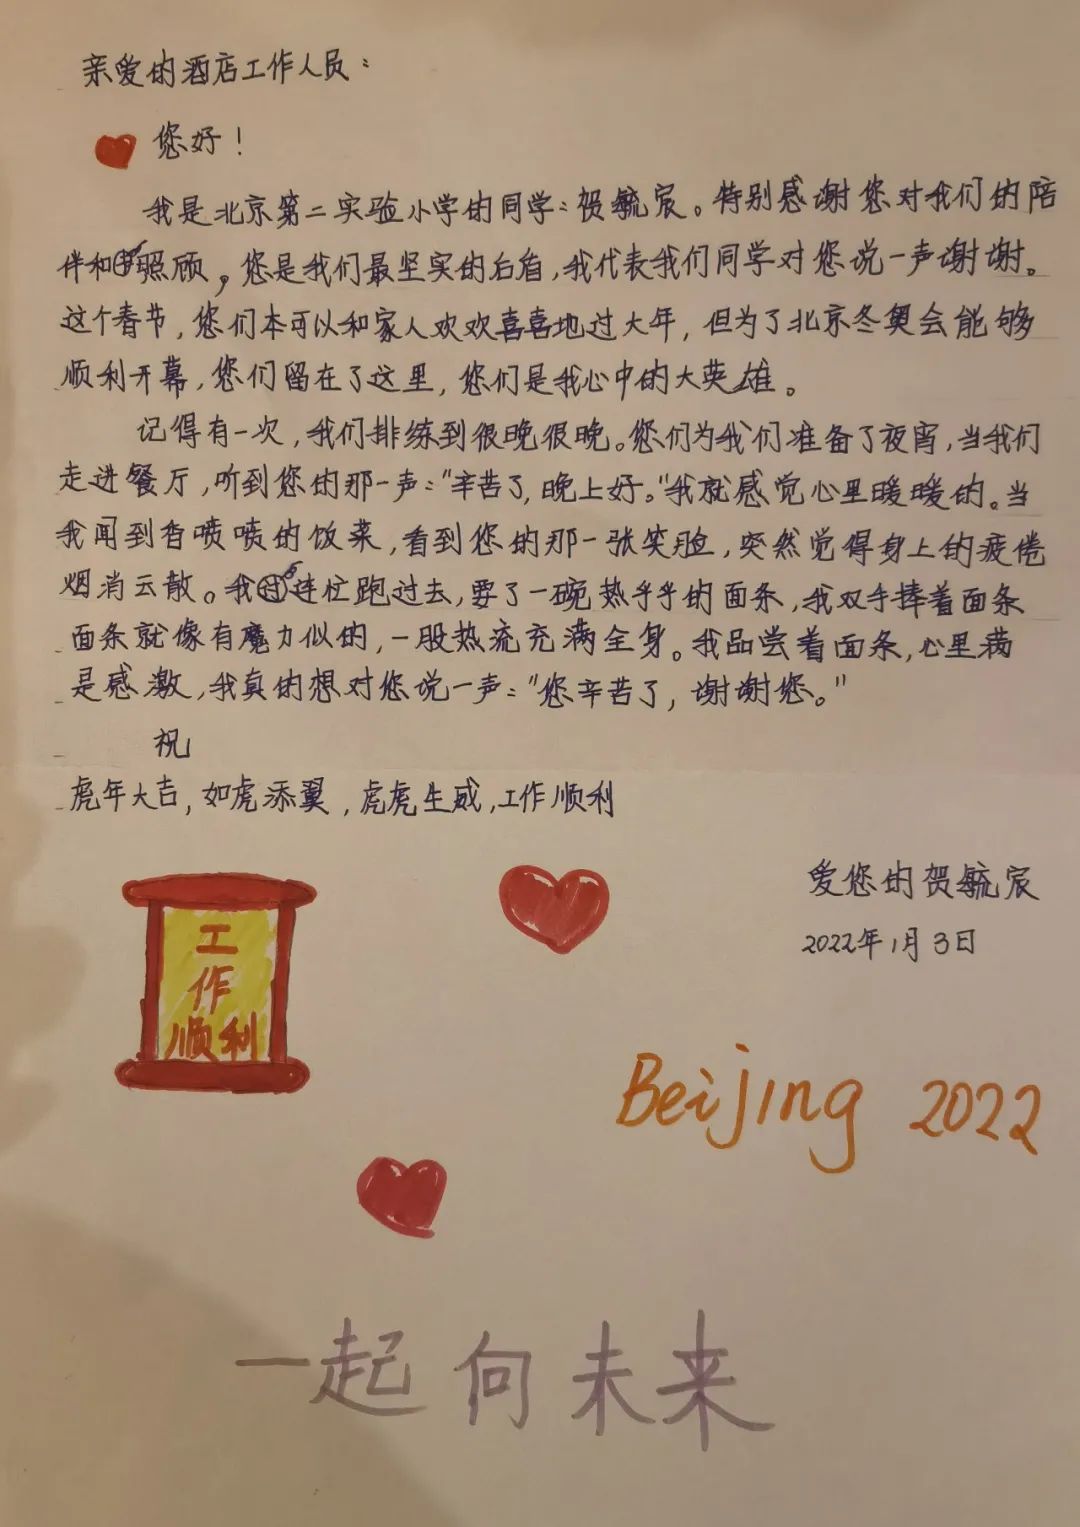 亲爱的酒店工作人员:
您好!
我是北京第二实验小学的同学:贺毓宸。特别感谢您对我们的陪
伴和照顾,您是我们最坚实的后盾,我代表我们同学对您说一声谢谢。
这个春节,您们本可以和家人欢欢喜喜地过大年,但为了北京冬奥会能够
顺利开幕,您们留在了这里,您们是我心中的大英雄。
记得有一次,我们排练到很晚很晚。您们为我们准备了夜宵,当我们
走进餐厅,听到您的那一声:“辛苦了,晚上好。”我就感觉心里暖暖的。当
我闻到香喷喷的饭菜,看到您的那一张笑脸,突然觉得身上的疲倦
烟消云散。我连忙跑过去,要了一碗热乎乎的面条,我双手捧着面条
面条就像有魔力似的,一股热流充满全身。我品尝着面条,心里满
是感激,我真的想对您说一声:“您辛苦了,谢谢您。”
祝
虎年大吉,如虎添翼,虎虎生威,工作顺利
爱您的贺毓宸
2022年1月3日
工
作
顺利
Beijing 2022
一起向未来